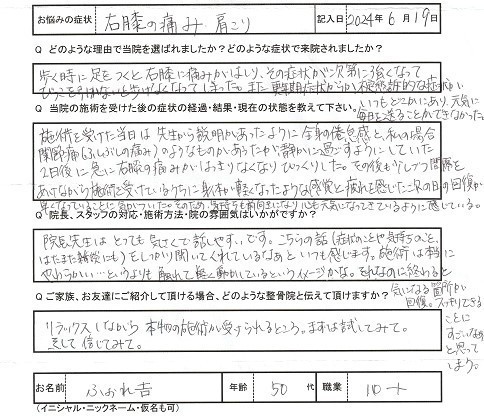 お悩みの症状 右膝の痛み 肩こり 記入日 2024年6月19日
Q どのような理由で当院を選ばれましたか？どのような症状で来院されましたか？
歩く時に足をつくと右膝に痛みがはしり、その症状が次第に強くなって
びっこを引かないと歩けなくなってしまった。また更年期症状からか不定愁訴的な症状が
いつもどこかにあり、元気に
毎日を送ることができなかった。
Q 当院の施術を受けた後の症状の経過・結果・現在の状態を教えて下さい。
施術を受けた当日は先生から説明があったように全身の倦怠感と私の場合
関節痛(ふしぶしの痛み)のようなものがあったが静かに過ごすようにしていた
2日後に急に右膝の痛みがはっきりなくなりびっくりした。その後も少しづつ間隔を
あけながら施術を受けているうちに身体が軽くなったような感覚と疲れを感じた次の日の回復が
早くなっていることに気がついた。そのため、気持ちも前向きになり心も元気になってきているように感じている。
Q 院長、スタッフの対応・施術方法・院の雰囲気はいかがですか？
院長先生はとっても気さくで話しやすいです。こちらの話(症状のことや気持ちのこと、
はたまた雑談にも)をしっかり聞いてくれているなぁといつも感じます。施術は本当に
やわらかい…というよりも触れて軽く動かしているというイメージかな。それなのに終わると
気になる箇所が
回復。スッキリできる
ことに
すごいなぁ
と思って
しまう。
Q ご家族、お友達にご紹介して頂ける場合、どのような整骨院と伝えて頂けますか？
リラックスしながら本物の施術が受けられるところ。まずは試してみて。
そして信じてみて。
お名前 ふぉれ吉 年齢 50代 職業 パート
(イニシャル・ニックネーム・仮名も可)